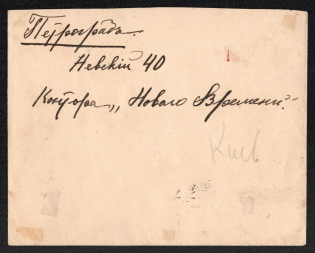 Петроградъ
Невскій 40
Контора „Новаго Времени".
Киев